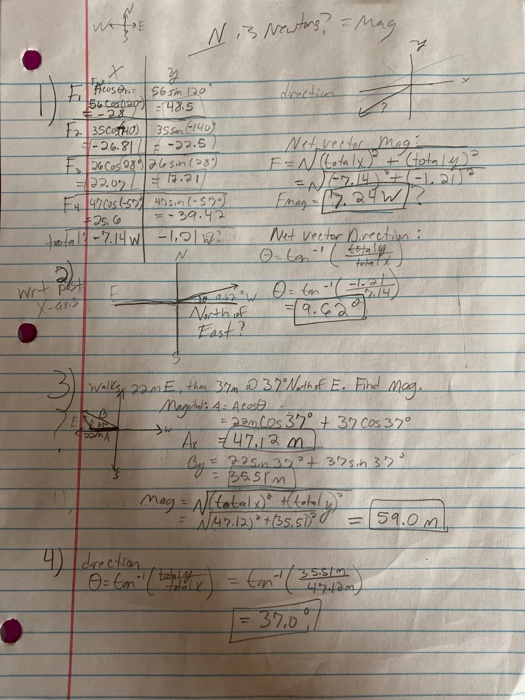 N
W E
S
N is Newtons? = Mag
x y
y
x
direction
?
1) F1 Acosθ= 56 sin 120°
56 cos(120) = 48.5
= -28
F2 35cos(-140) 35sin(-140)
= -26.81 = -22.5
F3 26cos(28°) 26sin(28°)
= 22.07 = 12.21
F4 47cos(-57°) 47sin(-57°)
= 25.6 = -39.42
total: -7.14 W -1.21 W?
Net vector Mag:
F = √(total x)² + (total y)²
= √(-7.14)² + (-1.21)²
Fmag = 7.24 W ?
Net vector Direction:
θ = tan⁻¹ (total y / total x)
θ = tan⁻¹ (-1.21 / -7.14)
= 9.62°
2)
wrt post
x-axis
N
E W
θ 9.62°
North of
East?
S
3) walks 22m E, then 37m @ 37° North of E. Find Mag.
?
E B
22m A
W
S
Magnitude: A = Acosθ
= 22m cos 37° + 37 cos 37°
Ax = 47.12 m
By = 22 sin 37° + 37 sin 37°
= 35.51 m
Mag = √(total x)² + (total y)²
= √(47.12)² + (35.51)² = 59.0 m
4) direction
θ = tan⁻¹ (total y / total x) = tan⁻¹ (35.51m / 47.12m)
= 37.0°